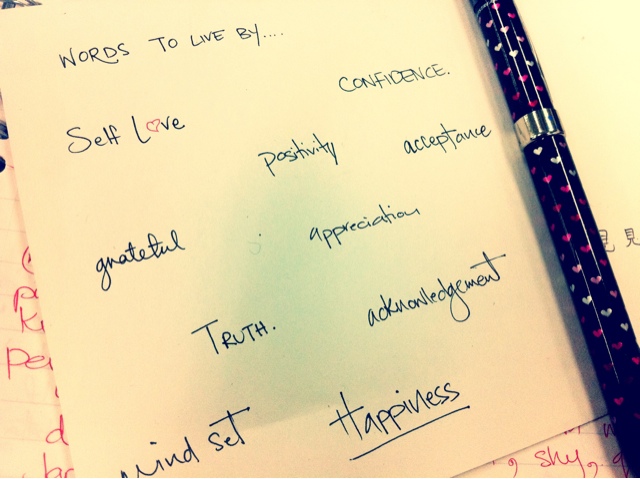 WORDS TO LIVE BY....
CONFIDENCE.
Self Love
positivity
acceptance
grateful
appreciation
見
TRUTH.
acknowledgement
mind set
Happiness
, shy,